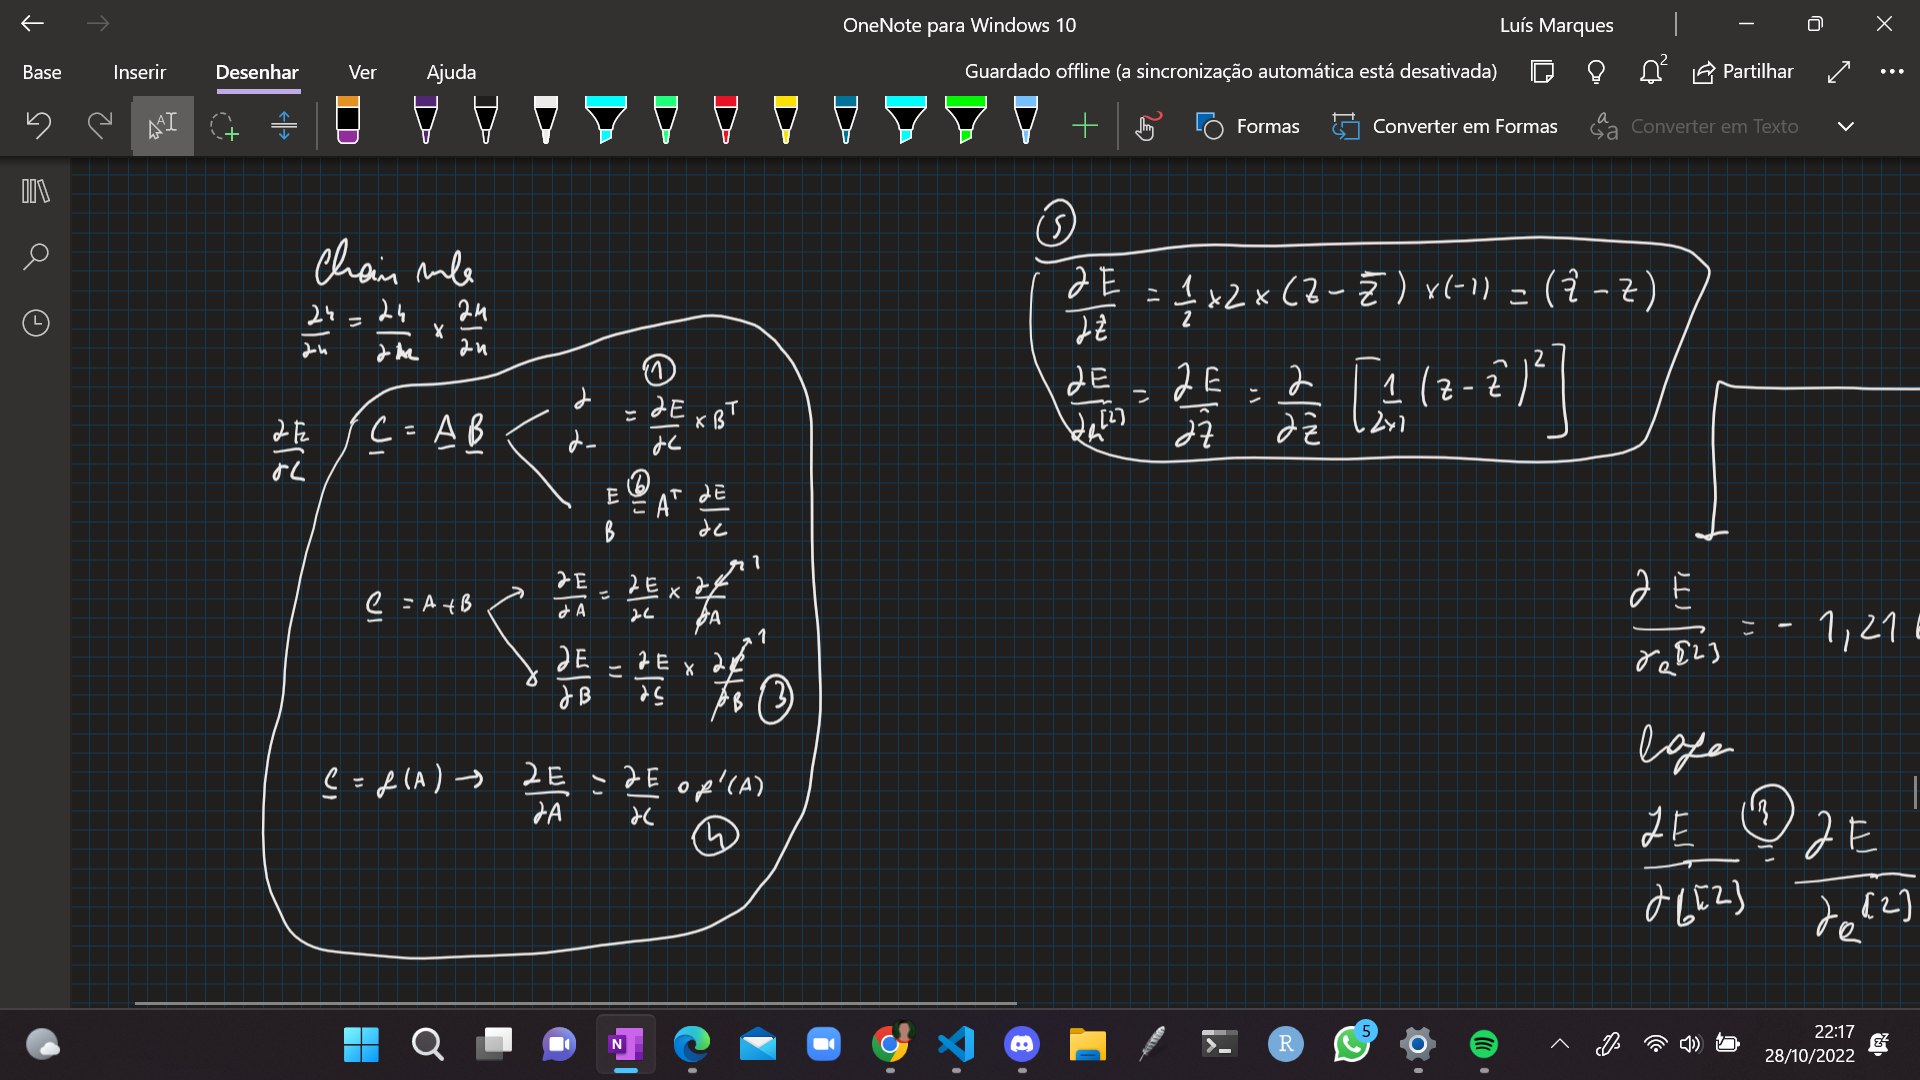 OneNote para Windows 10
Luís Marques
Base Inserir Desenhar Ver Ajuda
Guardado offline (a sincronização automática está desativada)
2
Partilhar
Formas
Converter em Formas
Converter em Texto
Chain rule
∂E/∂C
C = A B
① = ∂E/∂C × Bᵀ
E B = Aᵀ ∂E/∂C
C = A + B
∂E/∂A = ∂E/∂C × ∂C/∂A → 1
∂E/∂B = ∂E/∂C × ∂C/∂B → 1 ③
C = f(A) → ∂E/∂A = ∂E/∂C ∘ f'(A)
④
⑤
∂E/∂ẑ = 1/2 × 2 × (z - ẑ) × (-1) = (ẑ - z)
∂E/∂a[2] = ∂E/∂ẑ = ∂/∂ẑ [1/2×1 (z - ẑ)²]
∂E/∂a[2] = - 1,21
layer
∂E/∂b[2] ③= ∂E/∂a[2]
5
22:17
28/10/2022